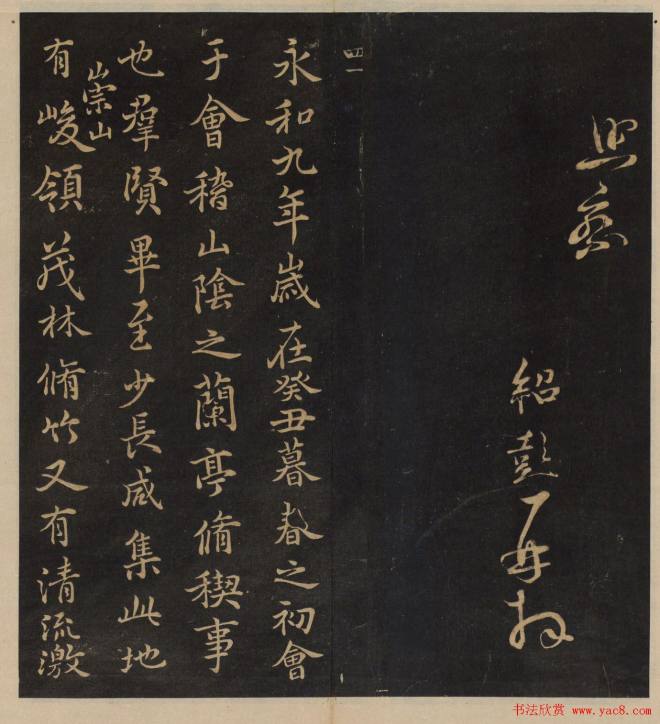 紹彭再拜
四一
永和九年歲在癸丑暮春之初會
于會稽山陰之蘭亭脩稧事
也羣賢畢至少長咸集此地
有崇山峻領茂林脩竹又有清流激
书法欣赏 www.yac8.com